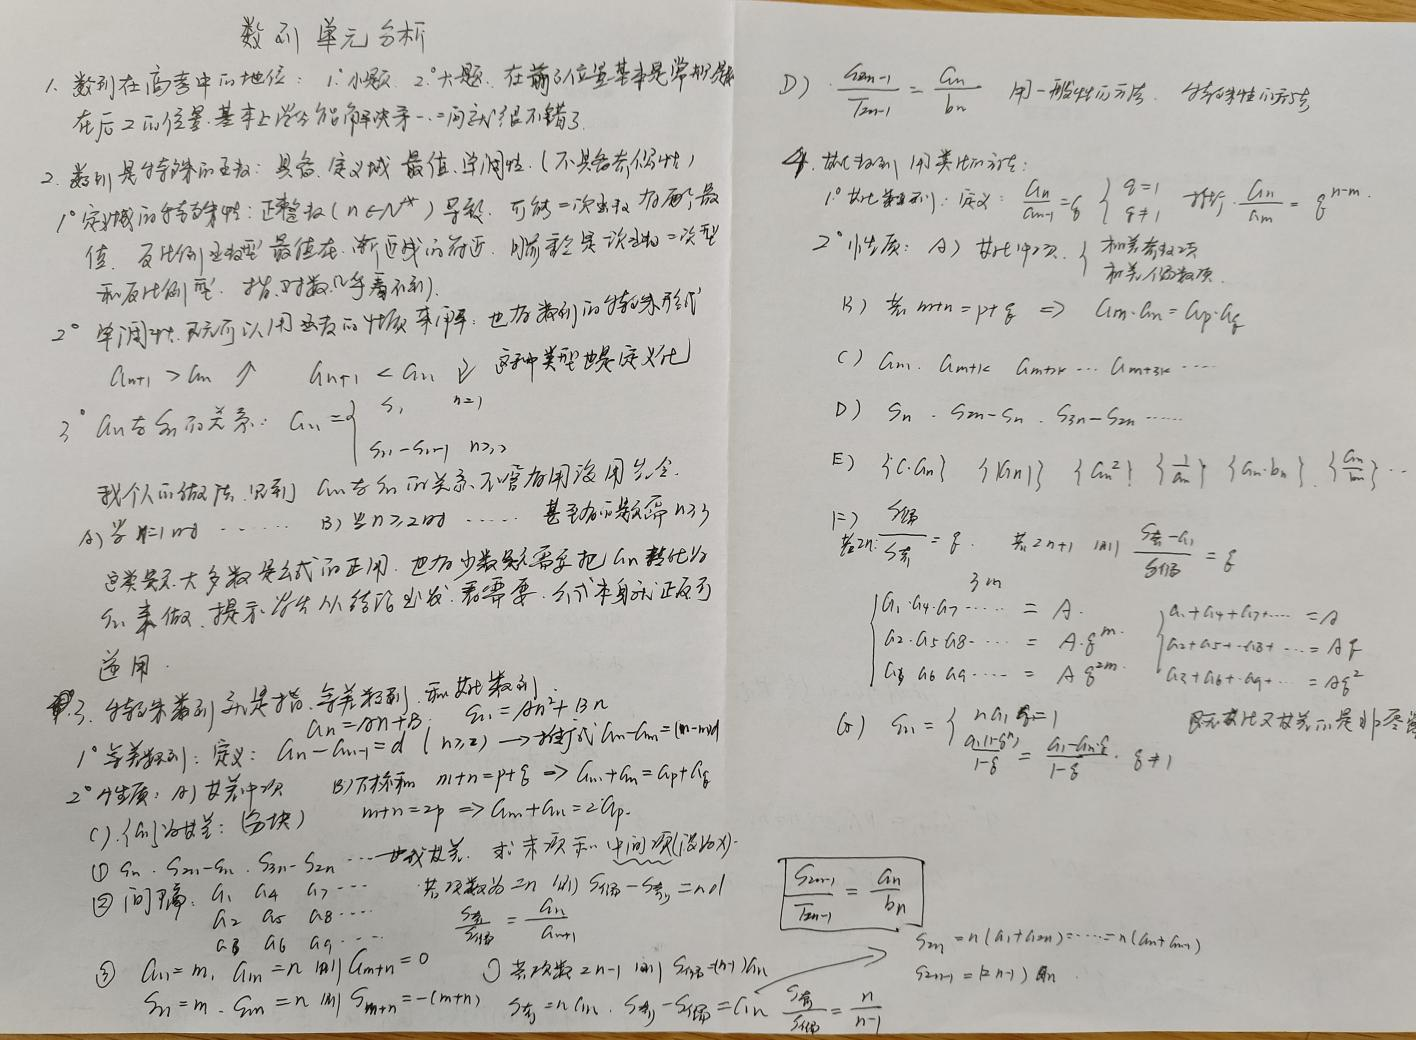 数列单元分析
1. 数列在高考中的地位: 1°小题. 2°大题. 在前3位置基本是常规题
在后2的位置.基本上学生能解决第一.二问就很不错了.
2. 数列是特殊的函数: 具备.定义域 最值.单调性.(不具备奇偶性)
1°定义域的特殊性: 正整数(n∈N*)导致. 可能二次函数有两个最
值. 反比例函数型 最值在.渐近线的附近. 二次型
和反比例型. 指.对数几乎看不到).
2° 单调性.既可以用函数的性质来解. 也有数列的特殊形式
an+1 > an ↗ an+1 < an ↘ 这种类型也是定义法
3° an与Sn的关系: an = { S1 n=1
Sn-Sn-1 n≥2
我个人的做法.见到 an与Sn的关系.不管有用没用先令.
A) 当n=1时 …… B) 当n≥2时 …… 甚至有的题需 n≥3
这类题.大多数是公式的正用.也有少数题需要把an转化为
Sn来做.提示学生从结论出发.看需要.公式本身就正反可
逆用.
3. 特殊数列就是指.等差数列.和等比数列.
an=An+B. Sn=An²+Bn
1°等差数列: 定义: an-an-1=d (n≥2) → 推广式 an-am=(n-m)d
2°性质: A) 等差中项 B) 下标和 m+n=p+q => am+an=ap+aq
m+n=2p => am+an=2·ap.
C). {an}为等差: (分块)
① Sn. S2n-Sn. S3n-S2n …… 成等差. 求末项和中间项(设为x).
② 间隔: a1 a4 a7 …
a2 a5 a8 ….
a3 a6 a9 ….
若项数为2n 则 S偶-S奇=nd
S奇/S偶 = an/an+1
③ an=m, am=n 则 am+n=0
Sn=m. Sm=n 则 Sm+n=-(m+n)
若项数2n-1 则 S偶=(n-1)an
S奇=n an. S奇-S偶=an S奇/S偶 = n/n-1
D) S2n-1/T2n-1 = an/bn 用一般性的方法. 特殊性的方法
4. 等比数列 用类比的方法:
1°等比数列: 定义: an/an-1=q { q=1 q≠1 推广. an/am = qⁿ⁻ᵐ.
2°性质: A) 等比中项. { 和关奇数项
和关偶数项.
B) 若 m+n=p+q => am·an=ap·aq
C) am. am+k am+2k … am+3k ….
D) Sn. S2n-Sn. S3n-S2n ……
E) {c·an} {|an|} {an²} {1/an} {an·bn}. {an/bn} …
F) 若2n: S偶/S奇 = q. 若2n+1 则 S奇-a1/S偶 = q
3m
{ a1·a4·a7 …… = A.
a2·a5 a8 …… = A·qᵐ.
a3 a6 a9 …… = A q²ᵐ.
{ a1+a4+a7+… = A
a2+a5+a8+ … = Aq
a3+a6+a9+ … = Aq²
G) Sn = { na1 q=1
a1(1-qⁿ)/1-q = a1-an·q/1-q. q≠1
既等比又等差的是非零常
S2n-1/T2n-1 = an/bn
S2n = n(a1+a2n)=……=n(an+an+1)
S2n-1=(2n-1)an